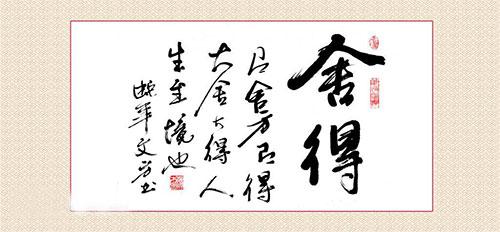 舍得
能舍方能得
大舍大得人
生至境也
文 书